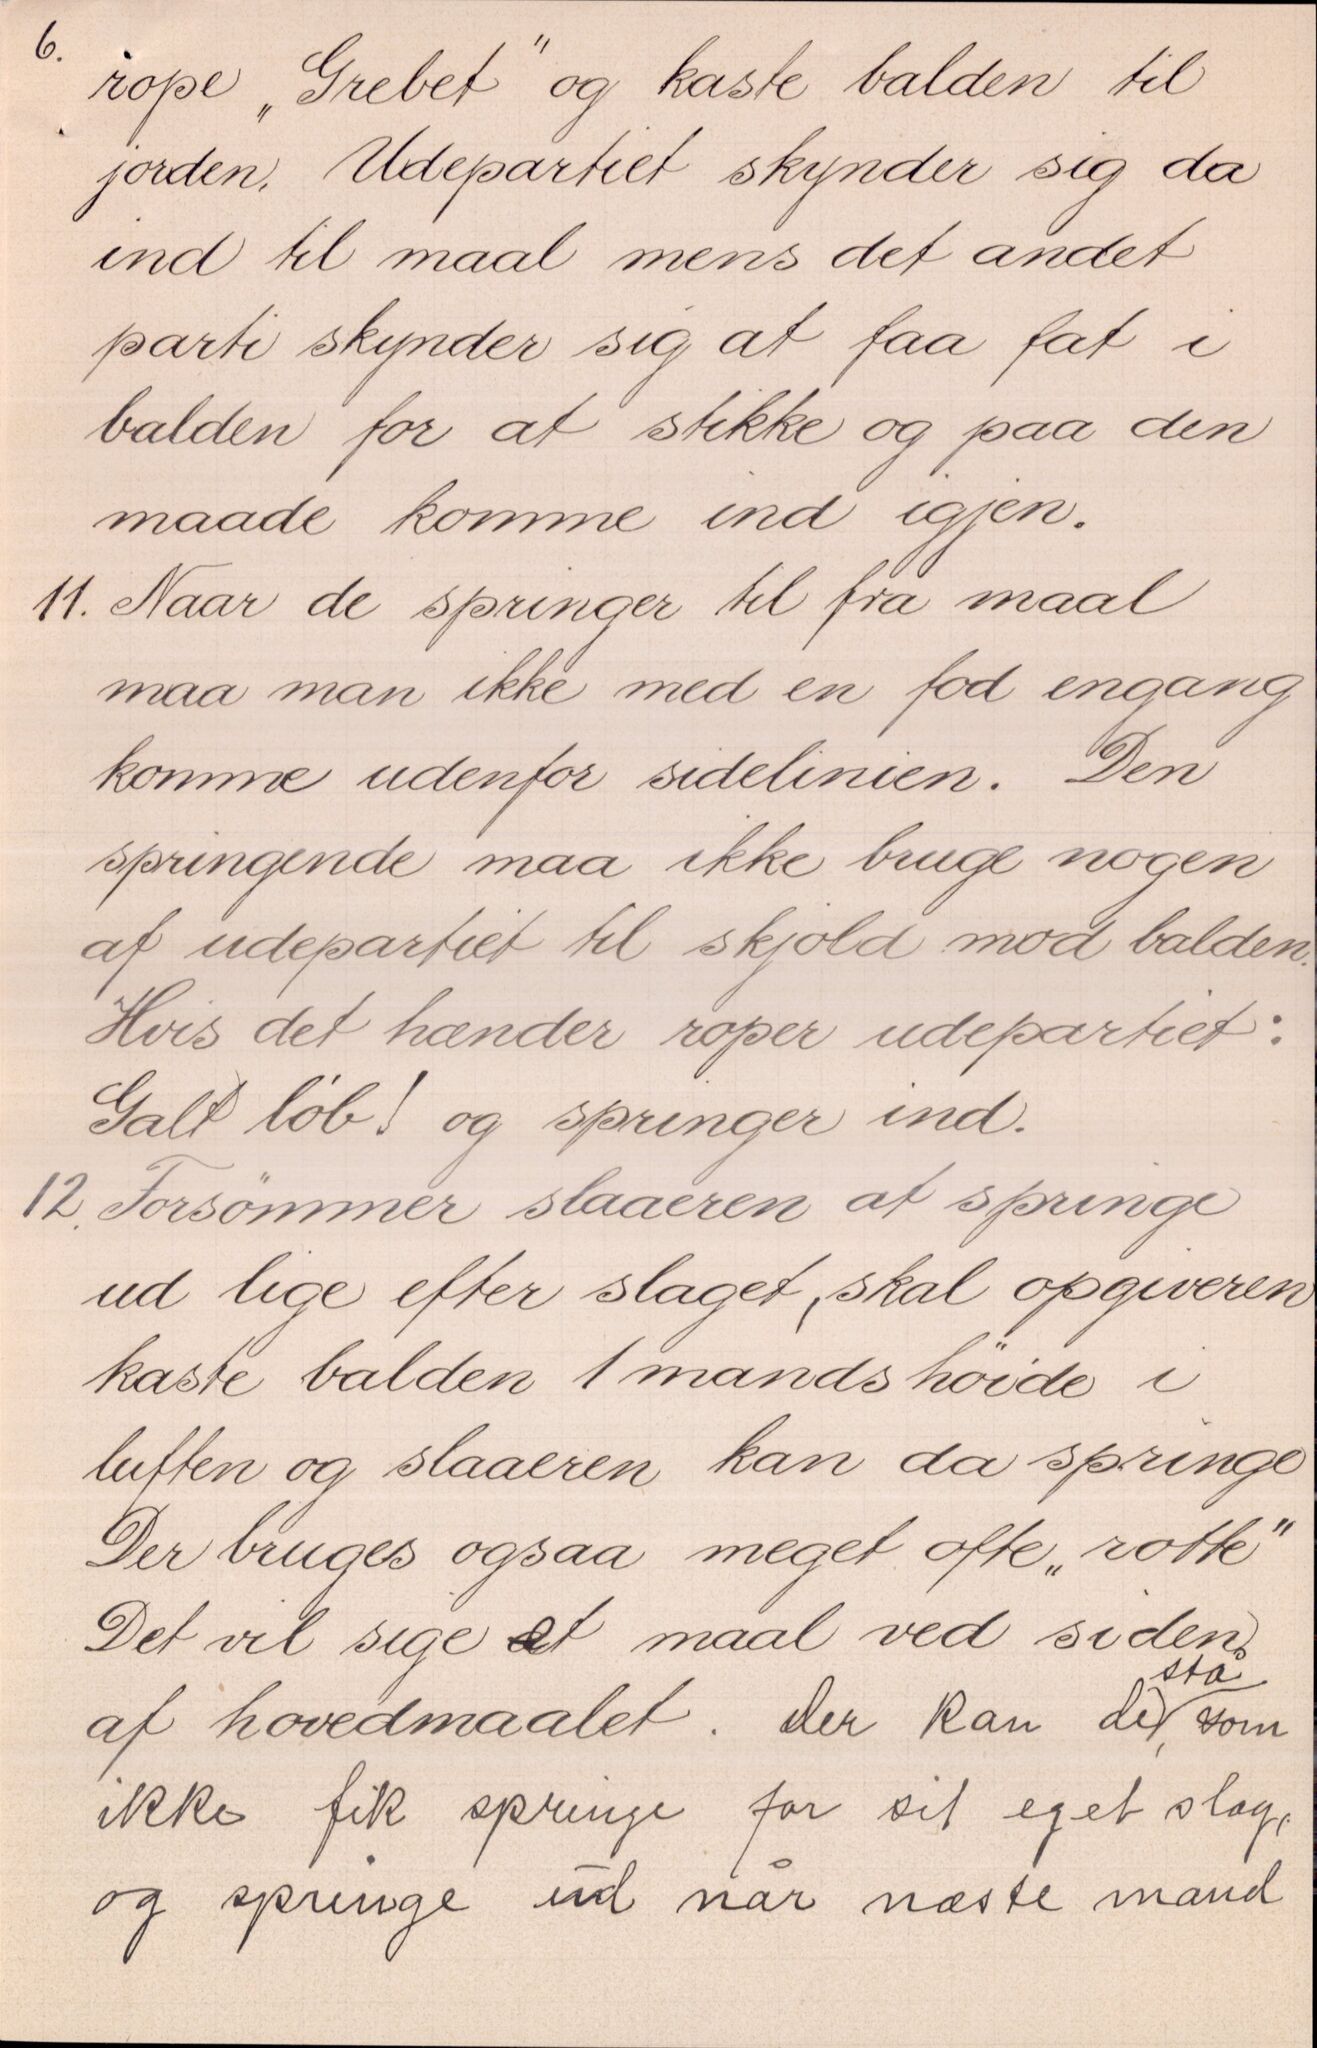 6.
rope „Grebet" og kaste balden til
jorden. Udepartiet skynder sig da
ind til maal mens det andet
parti skynder sig at faa fat i
balden for at stikke og paa den
maade komme ind igjen.
11. Naar de springer til fra maal
maa man ikke med en fod engang
komme udenfor sidelinien. Den
springende maa ikke bruge nogen
af udepartiet til skjold mod balden.
Hvis det hænder roper udepartiet:
Galt löb! og springer ind.
12. Forsömmer slaaeren at springe
ud lige efter slaget, skal opgiveren
kaste balden 1 mands höide i
luften og slaaeren kan da springe
Der bruges ogsaa meget ofte „rotte"
Det vil sige et maal ved siden
af hovedmaalet. Der kan de stå, som
ikke fik springe for sit eget slag,
og springe ud når næste mand